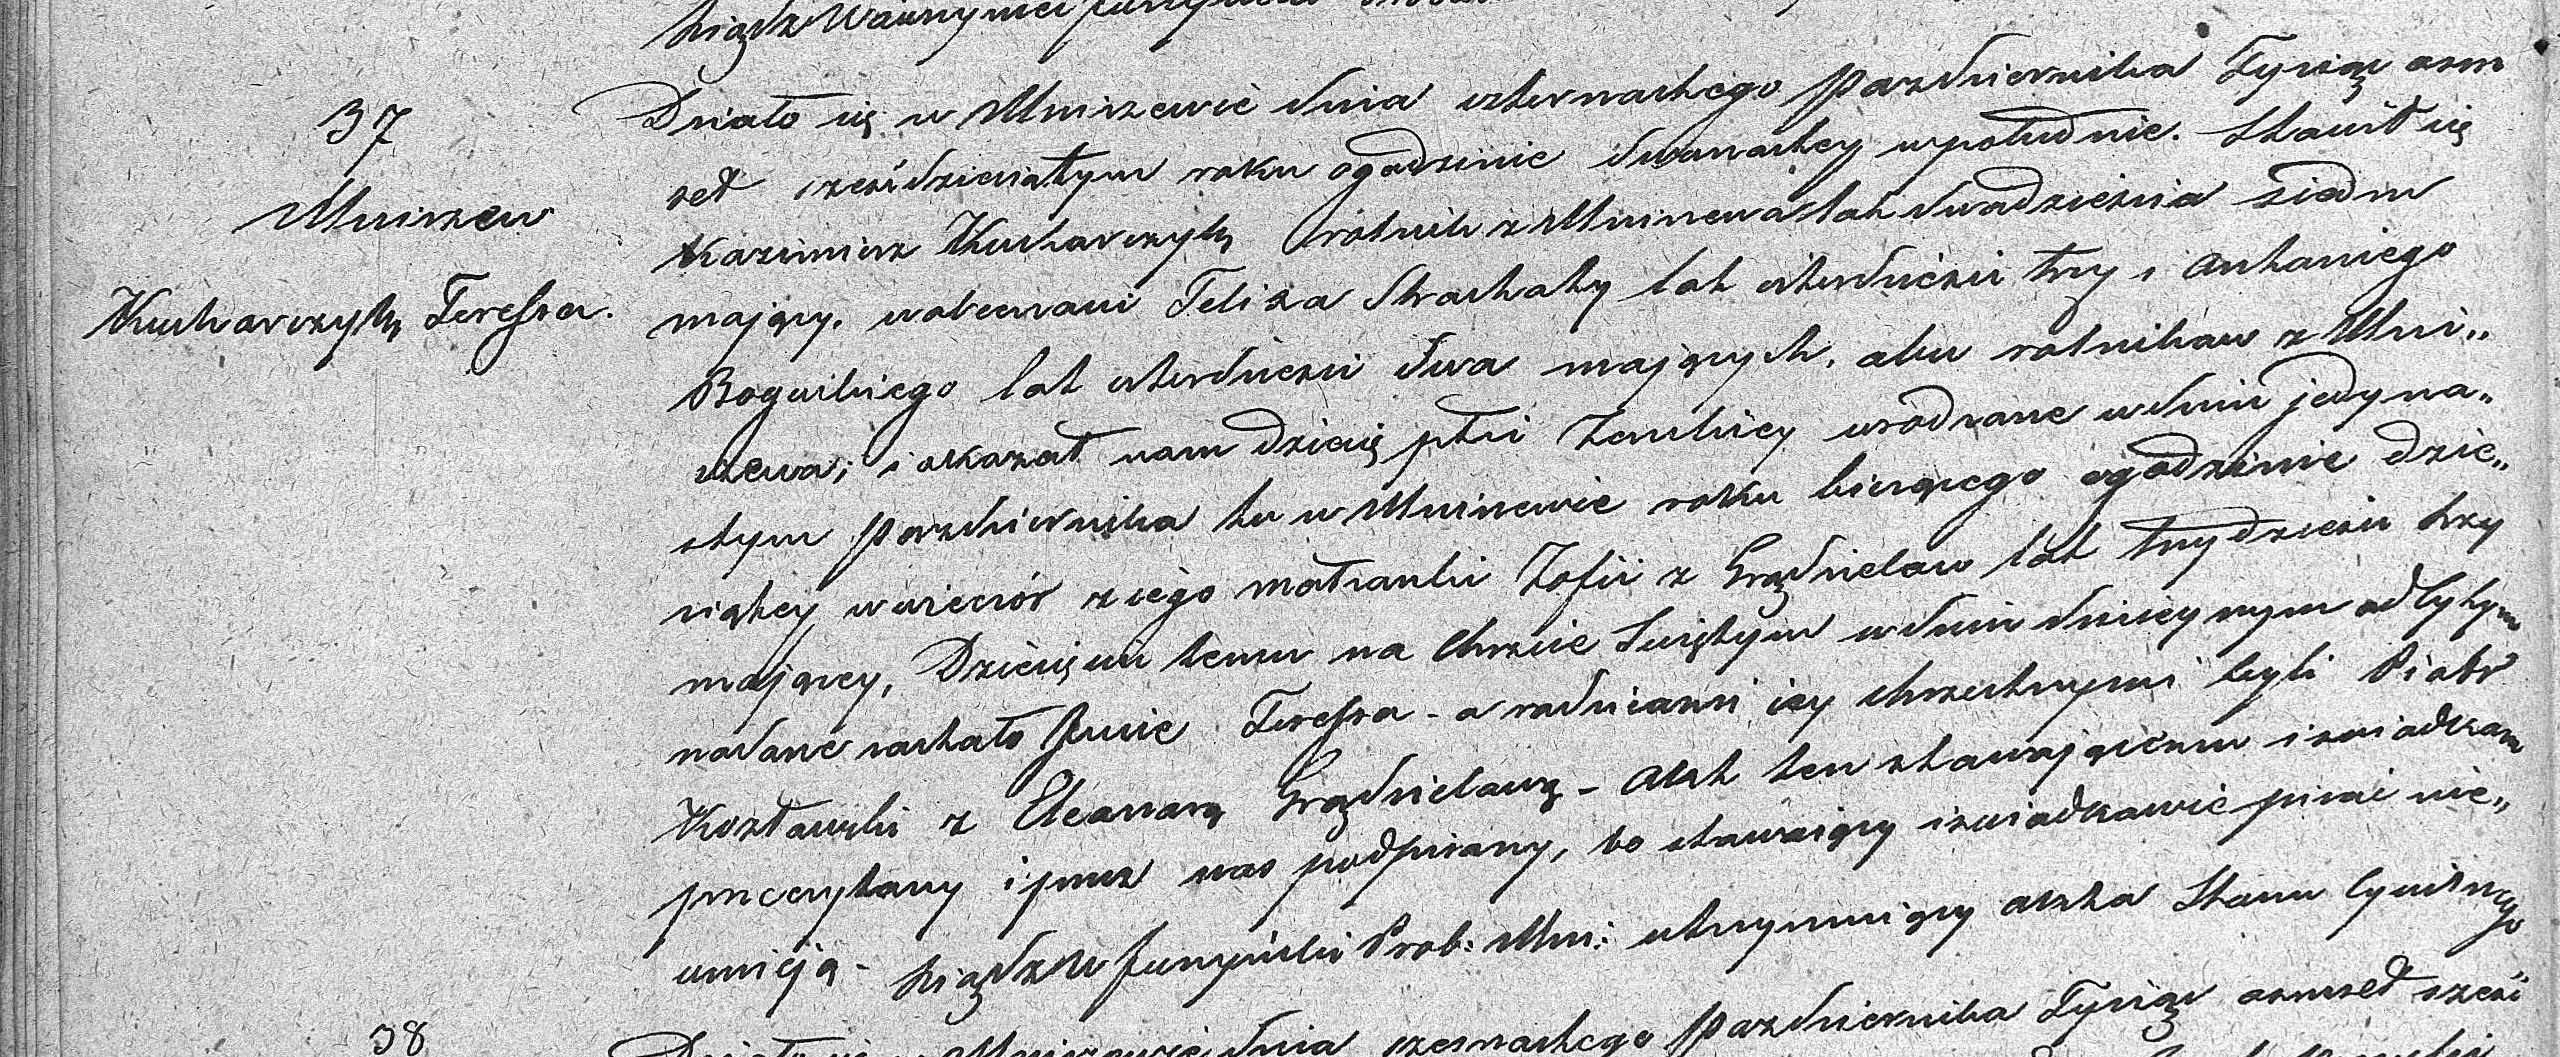 37
Mniszew
Kucharczyk Teressa.
Działo się w Mniszewie dnia czternastego Pazdziernika Tysiąc osm
set sześćdziesiątym roku ogodzinie dwunastey wpołudnie. Stawił się
Kazimierz Kucharczyk rolnik z Mniszewa lat dwadzieścia siedm
mający, wobecności Felixa lat czterdzieści trzy i Antoniego
Boguckiego lat czterdzieści dwa mających, obu rolników z Mni„
szewa; i okazał nam dziecię płci żeńskiey urodzone wdniu jedyna„
stym Pazdziernika tu w Mniszewie roku bieżącego ogodzinie dzie„
siątey wwieczór zjego małżonki Zofii z Grądzielow lat trzydzieści trzy
mającey, Dziecięciu temu na Chrzcie Swiętym wdniu dzisieyszym odbytym
nadane zostało Jmie Teressa - a rodzicami jey chrzestnymi byli Piotr
Kozłowski z Eleonorą Grądzielową - Akt ten stawającemu iswiadkom
przeczytany iprzez nas podpisany, bo stawaiący iswiadkowie pisać nie„
umieją - Xiądz W Prob: Mni: utrzymuiący Akta Stanu Cywilnego
38
Działo się w Mniszewie dnia szesnastego Pazdziernika Tysiąc osmset sześć